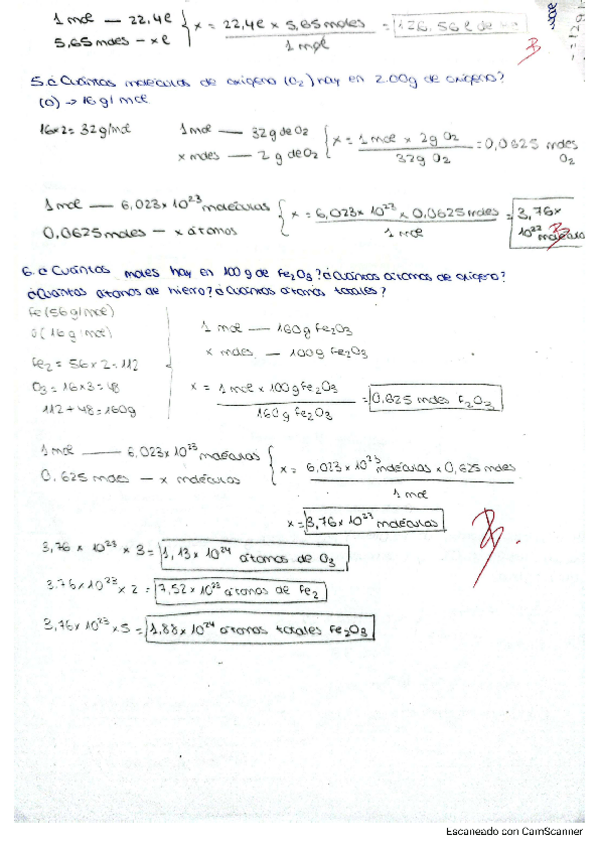 1 mol — 22,4l
5,65 moles — xl
x = 22,4l x 5,65 moles = 126,56 l de
1 mol
5. ¿Cuántas moléculas de oxígeno (O2) hay en 2.00g de oxígeno?
(O) → 16 g/mol
16x2 = 32g/mol
1 mol — 32g de O2
x moles — 2 g de O2
x = 1 mol x 2g O2 = 0,0625 moles O2
32g O2
1 mol — 6,023x10²³ moléculas
0,0625 moles — x átomos
x = 6,023x10²³ x 0,0625 moles = 3,76x
1 mol
10²² molécula
6. ¿Cuántos moles hay en 100g de Fe2O3? ¿Cuántos átomos de oxígeno?
¿Cuántos átomos de hierro? ¿Cuántos átomos totales?
Fe (56g/mol)
O (16g/mol)
Fe2 = 56x2 = 112
O3 = 16x3 = 48
112 + 48 = 160g
1 mol — 160g Fe2O3
x moles — 100g Fe2O3
x = 1 mol x 100g Fe2O3 = 0.625 moles F2O3
160g Fe2O3
1 mol — 6,023x10²³ moléculas
0.625 moles — x moléculas
x = 6,023x10²³ moléculas x 0,625 moles
1 mol
x = 3,76x10²³ moléculas
3,76 x 10²³ x 3 = 1,13x10²⁴ átomos de O3
3.76x10²³ x 2 = 7,52x10²³ átomos de Fe2
3,76x10²³ x 5 = 1,88x10²⁴ átomos totales Fe2O3
Escaneado con CamScanner